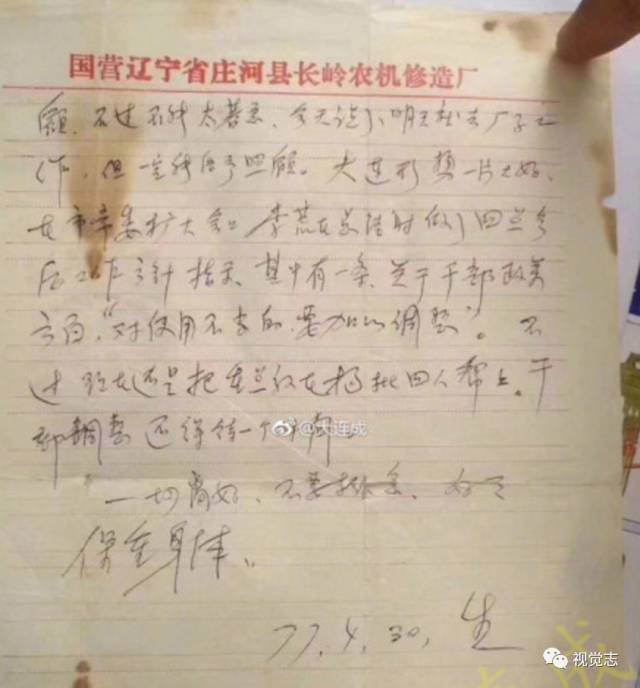 国营辽宁省庄河县长岭农机修造厂
顾。不过不能太着急,今天说了,明天就去厂子工
作,但一定能给予照顾。大连形势一片大好,
在市革委扩大会上 李荒在总结时做了四点今
后工作方针指示。其中有一条,关于干部政策
方面,“对使用不当的,要加以调整”。不
过现在还是把重点放在揭批四人帮上。干
部调整还得待一个时期。
一切肯好、不要挂念、好好
保重身体。
77.4.30, 生
@大连成
视觉志